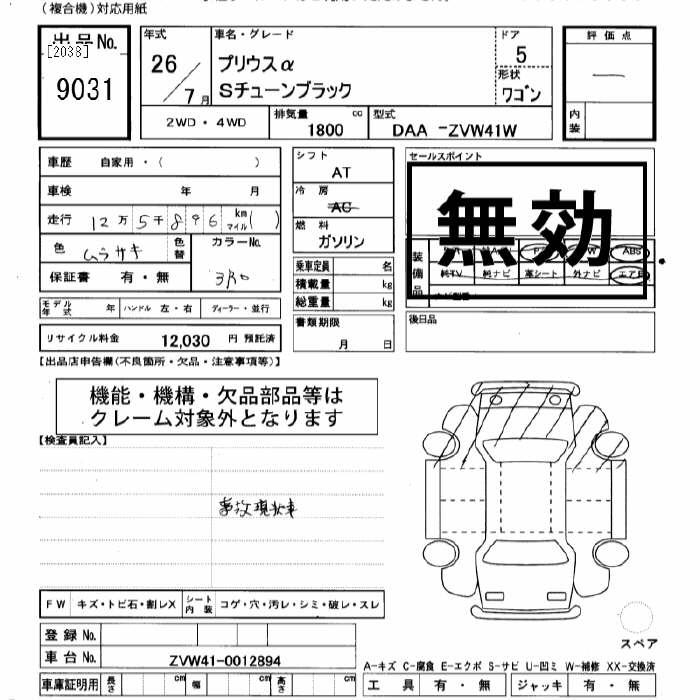 (複合機)対応用紙
出品No.
[2038]
9031
年式
26/7月
車名・グレード
プリウスα
Sチューンブラック
ドア
5
形状
ワゴン
評価点
内装
2WD・4WD
排気量 1800 cc
型式 DAA-ZVW41W
車歴 自家用・( )
車検 年 月
走行 12万5千896 km マイル( )
色 ムラサキ 色替 カラーNo. 3R0
保証書 有・無
モデル年式 年 ハンドル 左・右 ディーラー・並行
リサイクル料金 12,030 円 預託済
シフト
AT
冷房
AC
燃料
ガソリン
乗車定員 名
積載量 kg
総重量 kg
書類期限
月 日
セールスポイント
無効
装備品
ABS
純TV 純ナビ 革シート 外ナビ エアB
後日品
【出品店申告欄(不良箇所・欠品・注意事項等)】
機能・機構・欠品部品等は
クレーム対象外となります
【検査員記入】
事故現状車
FW キズ・トビ石・割レX シート内装 コゲ・穴・汚レ・シミ・破レ・スレ
登録No.
車台No. ZVW41-0012894
車庫証明用 長さ cm 幅 cm 高さ cm
スペア
A-キズ C-腐食 E-エクボ S-サビ U-凹ミ W-補修 XX-交換済
工具 有・無 ジャッキ 有・無